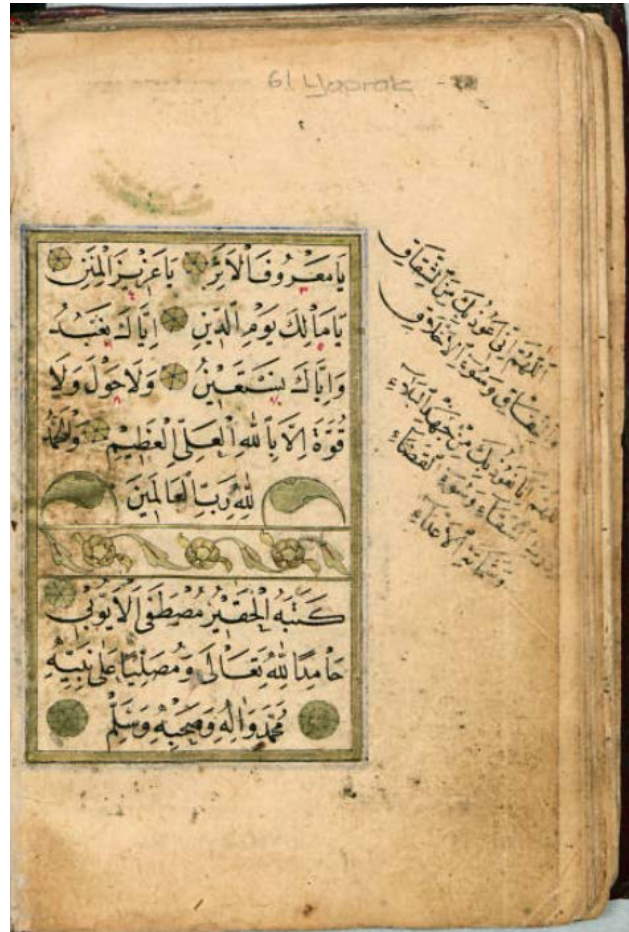 61 yaprak
يَا مَعْرُوفَ الْاَثَرِ يَا عَزِيزَ الْمَنِّ
يَا مَالِكَ يَوْمِ الدِّينِ اِيَّاكَ نَعْبُدُ
وَاِيَّاكَ نَسْتَعِينُ وَلَا حَوْلَ وَلَا
قُوَّةَ اِلَّا بِاللّٰهِ الْعَلِيِّ الْعَظِيمِ وَالْحَمْدُ
لِلّٰهِ رَبِّ الْعَالَمِينَ
كَتَبَهُ الْحَقِيرُ مُصْطَفَى الْاَيُّوبِي
حَامِدًا لِلّٰهِ تَعَالٰى وَمُصَلِّيًا عَلٰى نَبِيِّهِ
مُحَمَّدٍ وَاٰلِهِ وَصَحْبِهِ وَسَلَّمَ
اَللّٰهُمَّ اِنِّي اَعُوذُ بِكَ مِنَ الشِّقَاقِ
وَالنِّفَاقِ وَسُوءِ الْاَخْلَاقِ
اَللّٰهُمَّ اِنَّا نَعُوذُ بِكَ مِنْ جَهْدِ الْبَلَاءِ
الشَّقَاءِ وَسُوءِ الْقَضَاءِ
وَشَمَاتَةِ الْاَعْدَاءِ